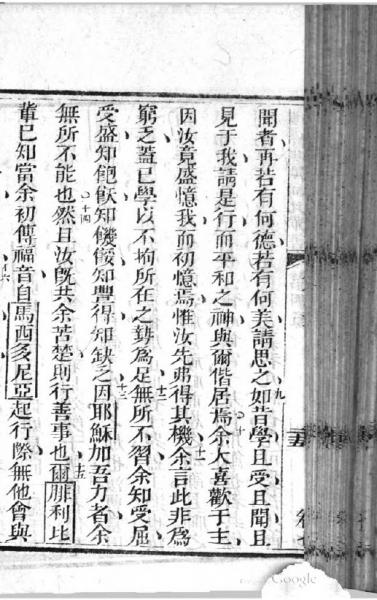 聞者再若有何德若有何美請思之如昔學且受且聞且
九
見于我請是行而平和之神與爾偕居焉余大喜歡于主
十
因汝竟盛憶我而初憶焉惟汝先弗得其機余言此非為
十一
窮乏蓋已學以不拘所在之勢為足無所不習余知受屈
十二
受盛知飽飫知饑餒知豐得知缺之因耶穌加吾力者余
十三
無所不能也然且汝既共余苦楚則行善事也爾腓利比
十四
十五
輩已知當余初傳福音自馬西多尼亞起行際無他會與
Google